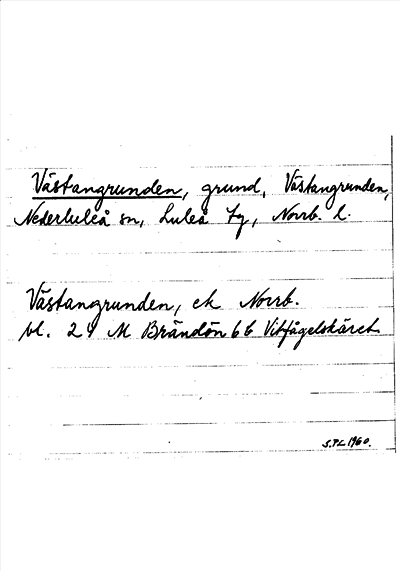 Västangrunden, grund, Västangrunden,
Nederluleå sn, Luleå tg, Norrb. l.
Västangrunden, ek Norrb.
bl. 24 M Brändön 6 b Vitfågelskäret
S.PL 1960.